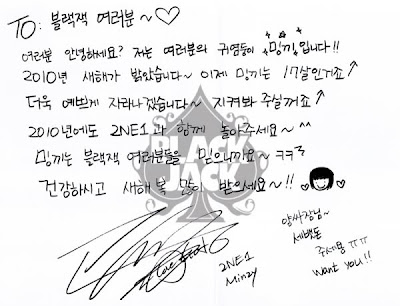 TO: 블랙잭 여러분~♡
여러분 안녕하세요? 저는 여러분의 귀염둥이 밍끼입니다!!
2010년 새해가 밝았습니다~ 이제 밍끼는 17살인거죠↑
더욱 예쁘게 자라나겠습니다~ 지켜봐 주실꺼죠↑
2010년에도 2NE1과 함께 놀아주세요~^^
밍끼는 블랙잭 여러분들을 믿으니까요~ ㅋㅋ
건강하시고 새해 복 많이 받으세요~!!
BLACK
JACK
양싸장님~
세뱃돈
주세용 ㅠㅠ
want you!!
2NE1
Minzy